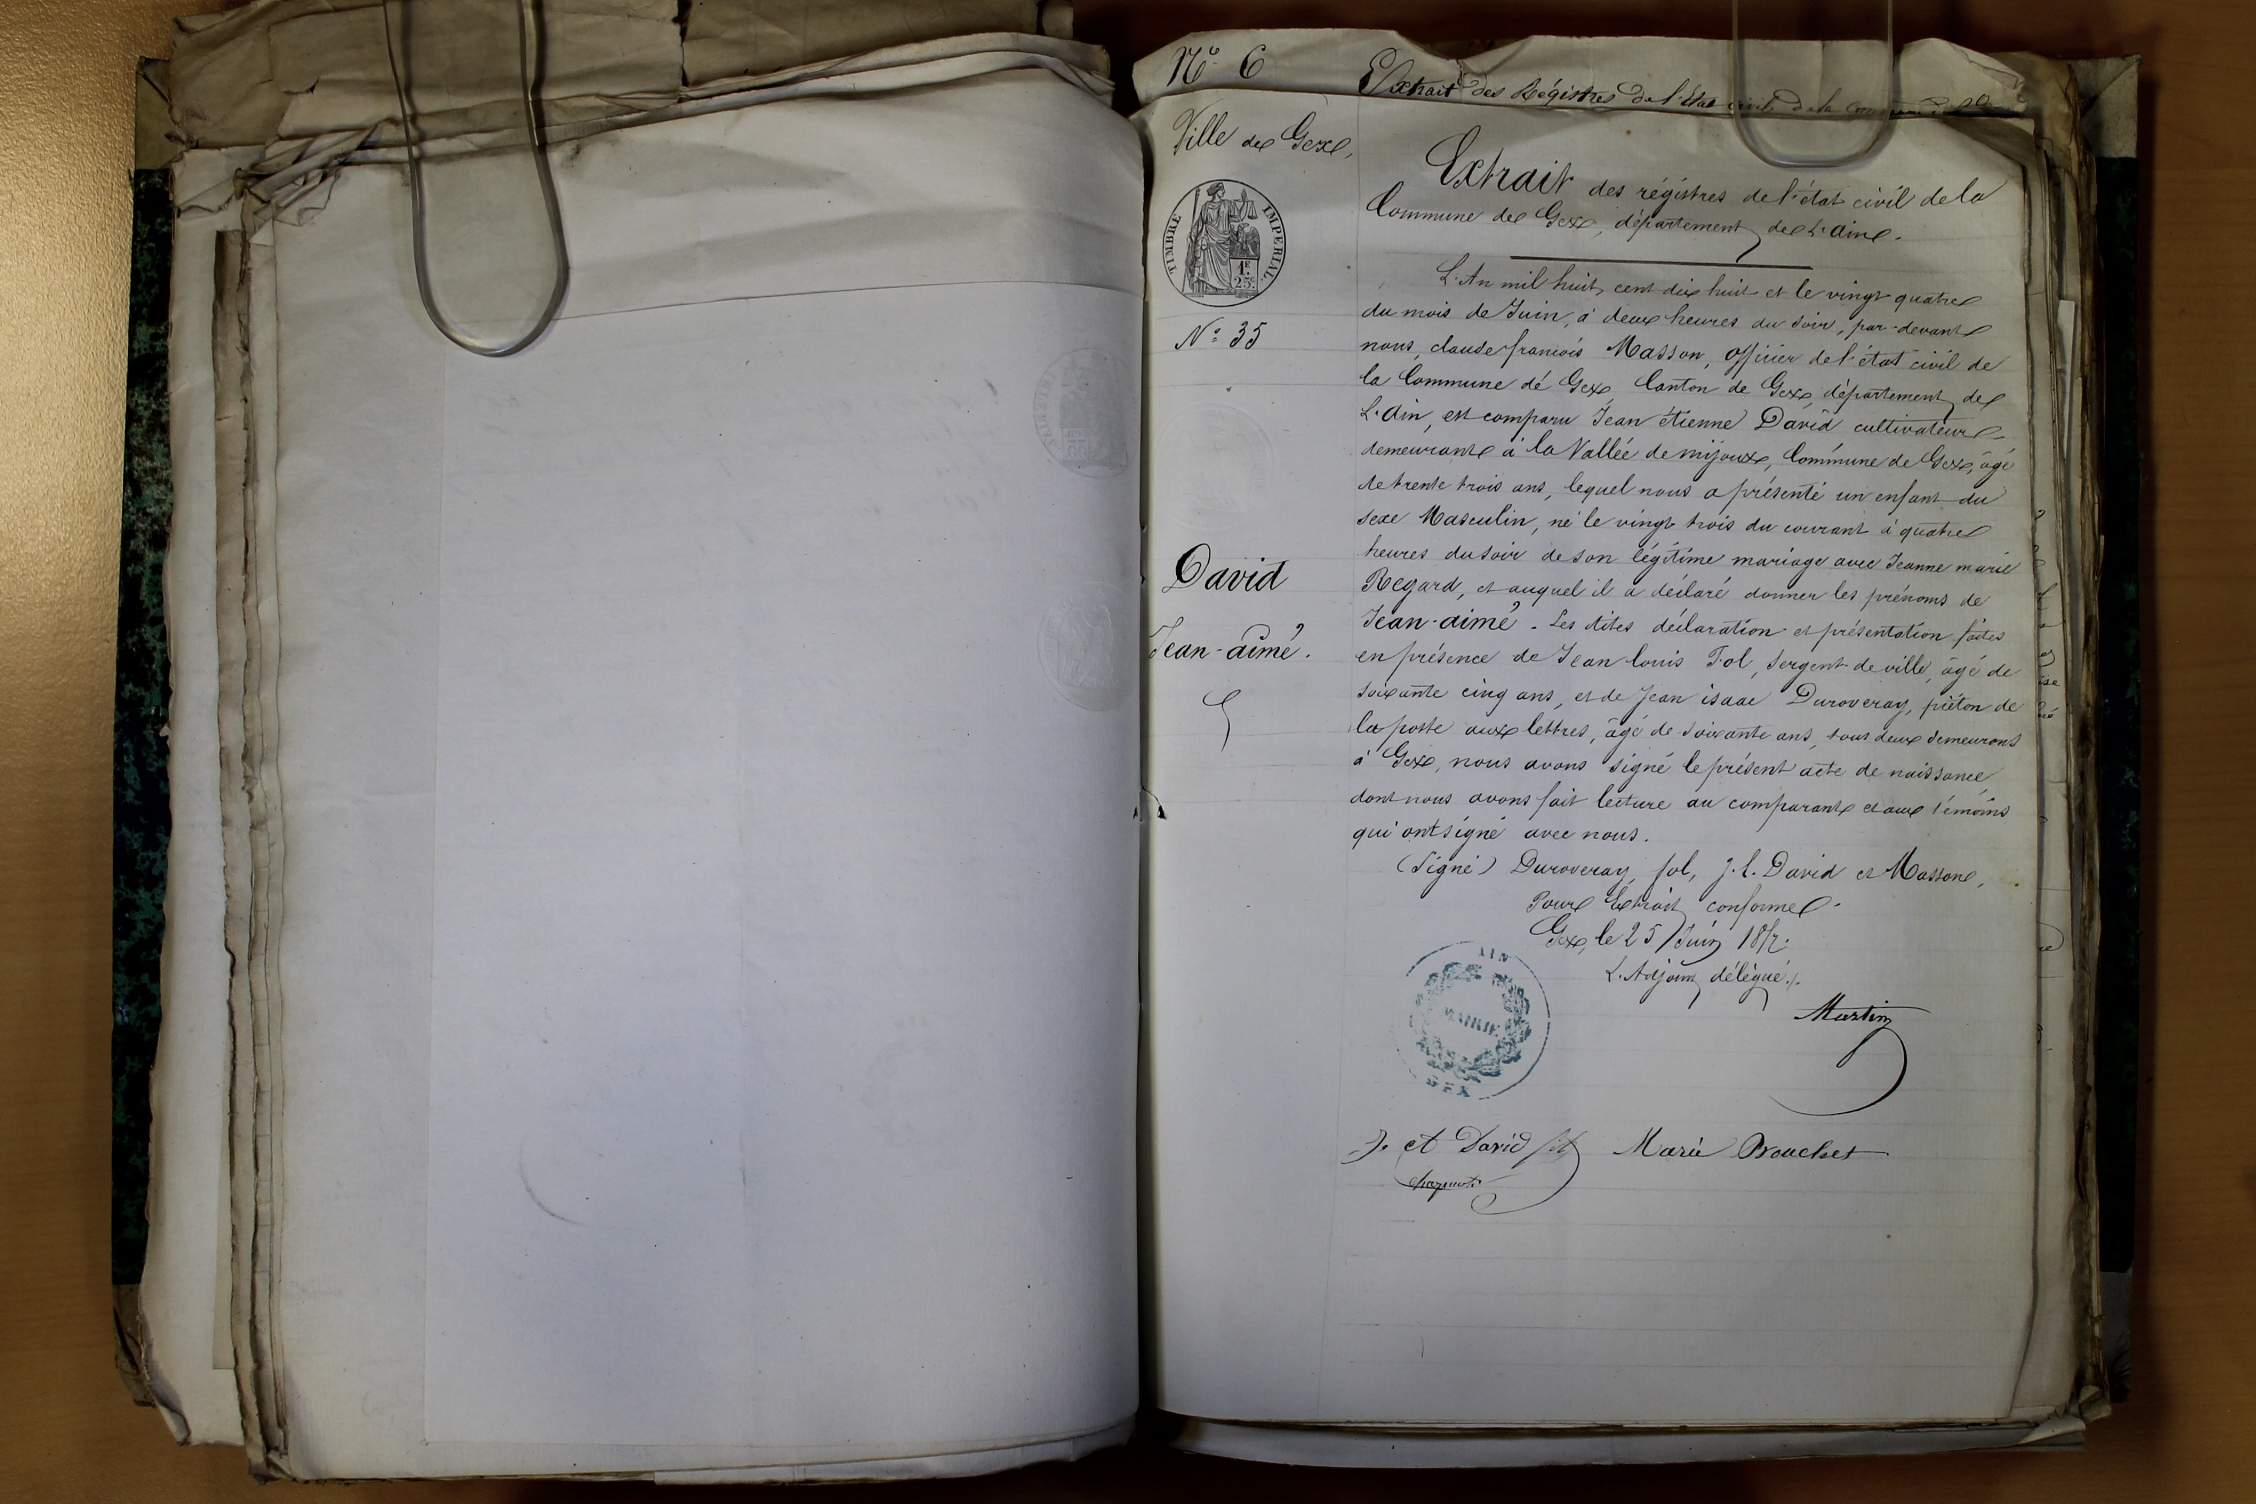 No 6
Extrait des Régistres de l'Etat civil de la
Ville de Gex,
TIMBRE IMPERIAL
1F.
25c.
No 35
David
Jean-aimé.
Extrait des régistres de l'état civil de la
Commune de Gex, département de L'ain.
L'An mil huit cent dix huit et le vingt quatre
du mois de Juin, à deux heures du soir, par-devant
nous, claude françois Masson, officier de l'état civil de
la Commune dé Gex, Canton de Gex, département de
L'Ain, est comparu Jean étienne David cultivateur
demeurant à la Vallée de mijoux, Commune de Gex, âgé
de trente trois ans, lequel nous a présenté un enfant du
sexe Masculin, né le vingt trois du courant à quatre
heures du soir de son légitime mariage avec Jeanne marie
Regard, et auquel il a déclaré donner les prénoms de
Jean-aimé. Les dites déclaration et présentation faites
en présence de Jean-louis Fol, sergent de ville, âgé de
soixante cinq ans, et de Jean isaac Duroveray, piéton de
la poste aux lettres, âgé de soixante ans, tous deux demeurons
à Gex, nous avons signé le présent acte de naissance
dont nous avons fait lecture au comparant et aux témoins
qui ont signé avec nous.
(Signé) Duroveray, fol, J. E. David et Masson,
Pour Extrait conforme.
Gex, le 25 Juin 18
L'Adjoint délégué.
Martin
AIN
MAIRIE
GEX
et David Marie Brouchet